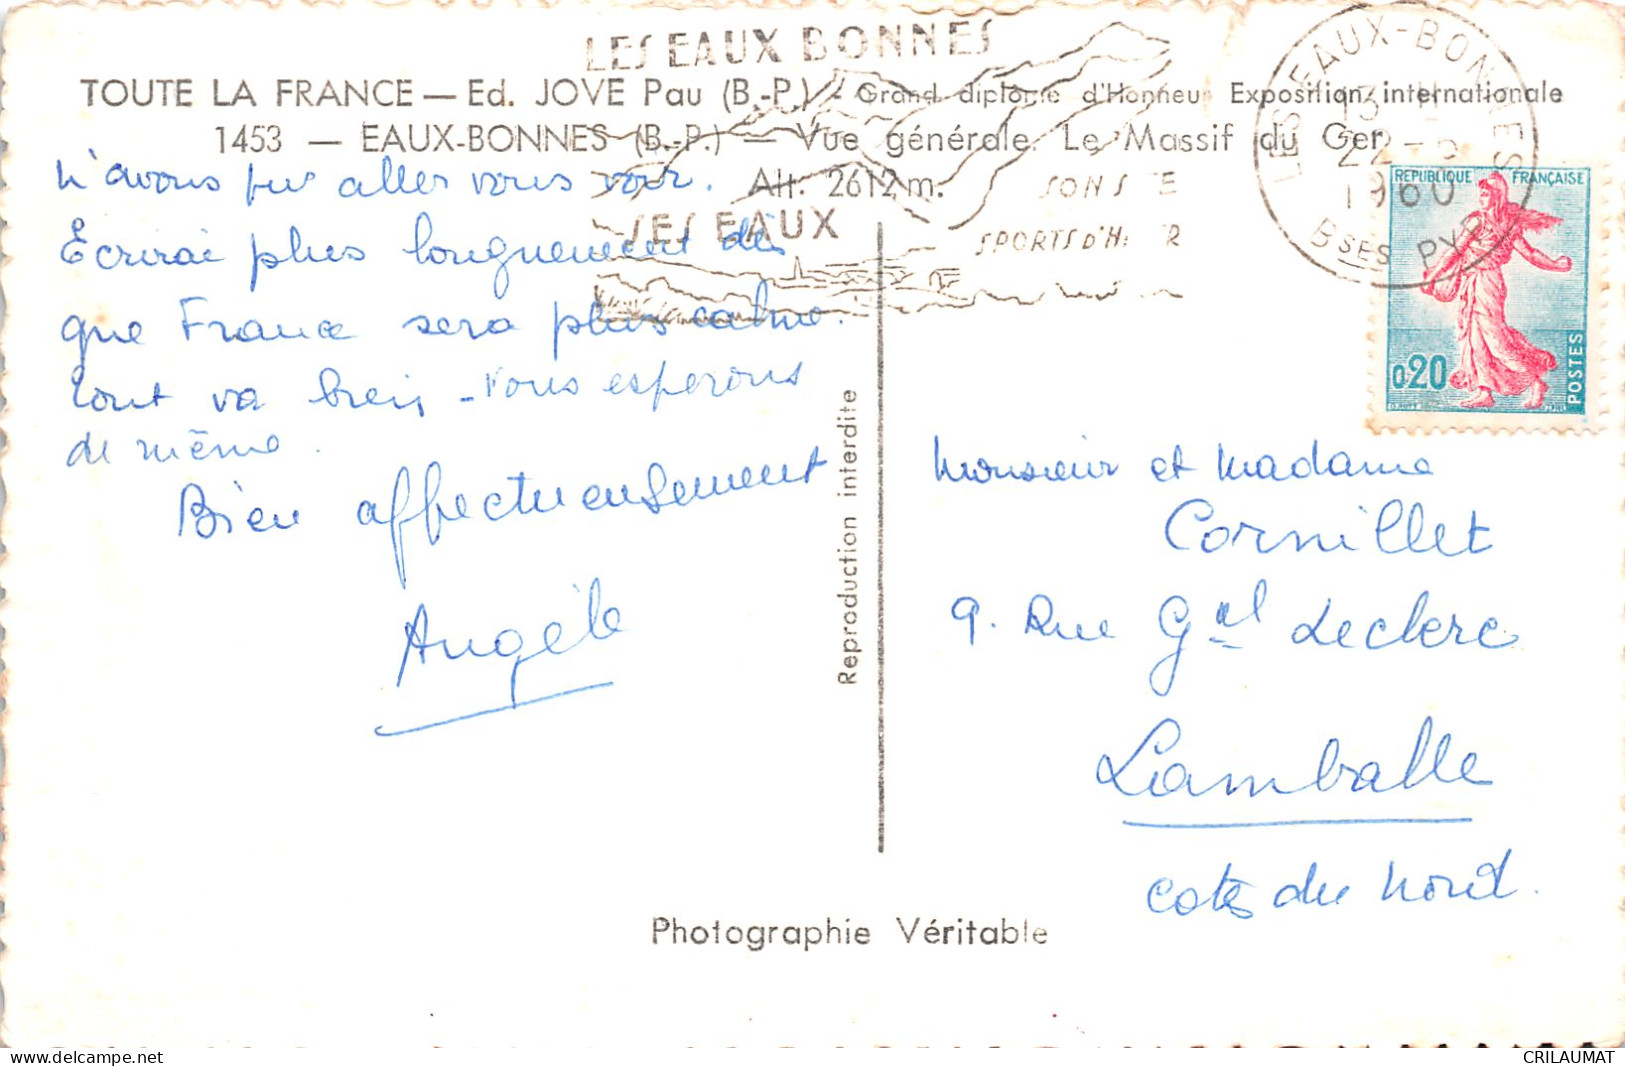 LES EAUX BONNES
TOUTE LA FRANCE — Ed. JOVE Pau (B.-P.) - Grand diplôme d'Honneur Exposition internationale
1453 — EAUX-BONNES (B.-P.) — Vue générale. Le Massif du Ger -
Alt. 2612 m.
SES EAUX
SON S TE
SPORTS D'H ER
LES EAUX-BONNES
22
1960
BSES PYR
REPUBLIQUE FRANÇAISE
0,20
POSTES
N'avons pu aller vous voir.
Ecrirai plus longuement dès
que France sera plus calme.
Tout va bien - Vous esperons
de même.
Bien affectueusement
Angèle
Reproduction interdite
Monsieur et Madame
Cornillet
9. Rue Gal Leclerc
Lamballe
Cotes du Nord.
Photographie Véritable
delcampe.net
CRILAUMAT